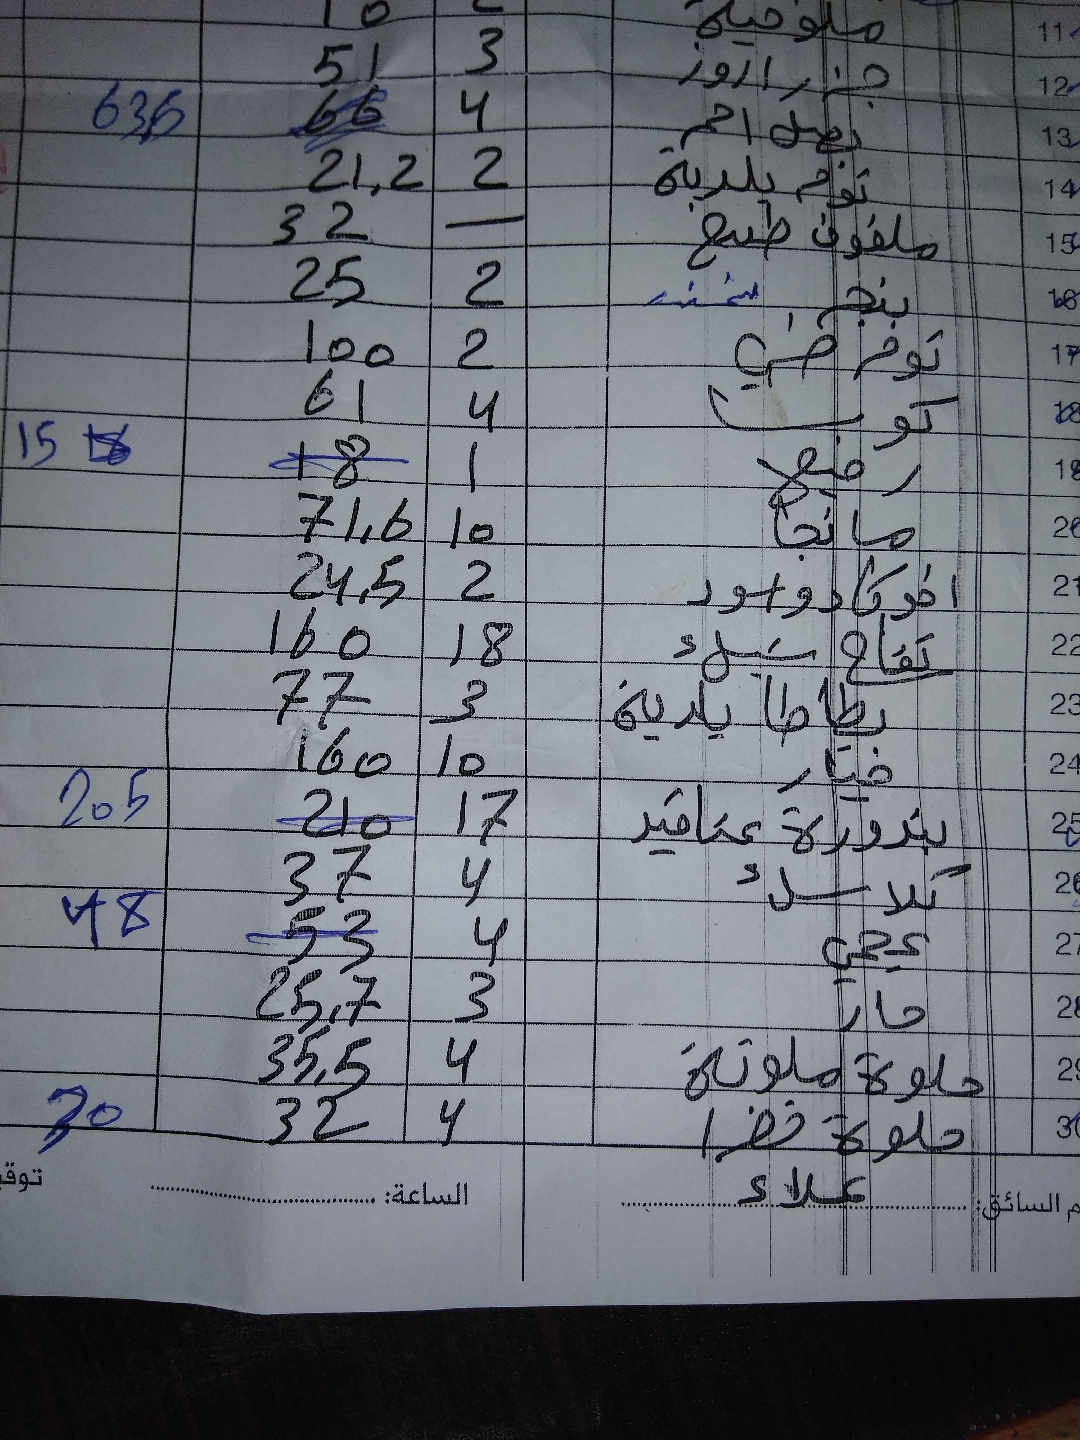 11 ملوخية 2 10
12 جزر اروز 3 51
13 بصل احمر 4 66 63,6
14 توم بلدية 2 21,2
15 ملفوف طبيخ — 32
16 بنجر 2 25
17 توم صيني 2 100
18 كوب 4 61
19 1 18 15
20 مانجا 10 71,6
21 افوكادو اسود 2 24,5
22 تفاح 18 160
23 بطاطا بلدية 3 77
24 خيار 10 160
25 بندورة عناقيد 17 210 205
26 4 37
27 عجمي 4 53 48
28 حار 3 25,7
29 حلوة ملونة 4 35,5
30 حلوة خضرا 4 32 30
م السائق: علاء الساعة: توقي